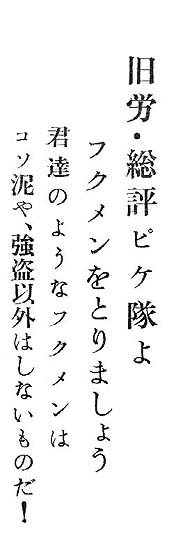 旧労・総評ピケ隊よ
フクメンをとりましょう
君達のようなフクメンは
コソ泥や、強盗以外はしないものだ！